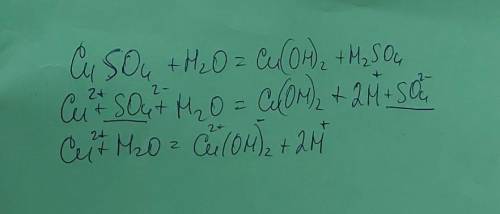 CuSO₄ + H₂O = Cu(OH)₂ + H₂SO₄
Cu²⁺ + SO₄²⁻ + H₂O = Cu(OH)₂ + 2H⁺ + SO₄²⁻
Cu²⁺ + H₂O = Cu²⁺(OH)⁻₂ + 2H⁺